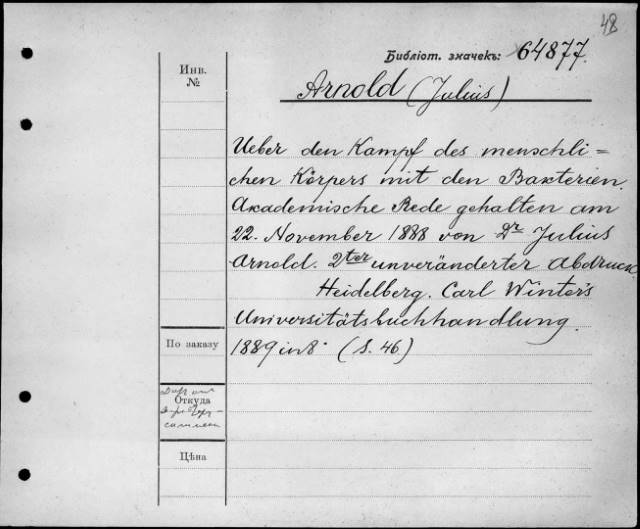 48
Библіот. значекъ: 64877.
Инв.
№
Arnold (Julius)
Ueber den Kampf des menschli=
chen Körpers mit den Bakterien.
Akademische Rede gehalten am
22. November 1888 von Dr Julius
Arnold. 2ter unveränderter Abdruck.
Heidelberg. Carl Winter's
Universitätsbuchhandlung.
По заказу
1889 in 8° (S. 46.)
Откуда
Цѣна